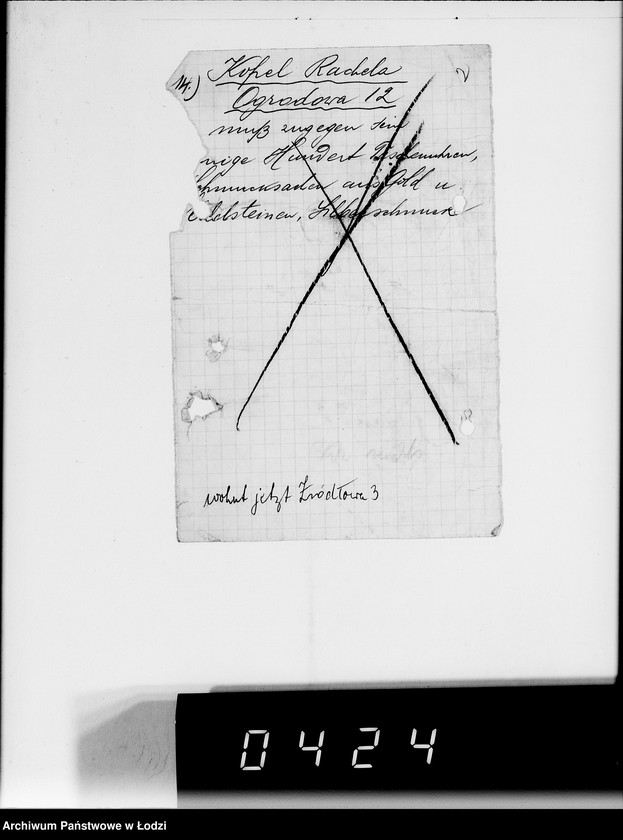 14.) Kopel Rachela
Ogrodowa 12
muß zugegen sein
nige Hundert Taschenuhren,
hmucksachen aus Gold u.
delsteinen, Silberschmuck
wohnt jetzt Źródłowa 3
0424
Archiwum Państwowe w Łodzi